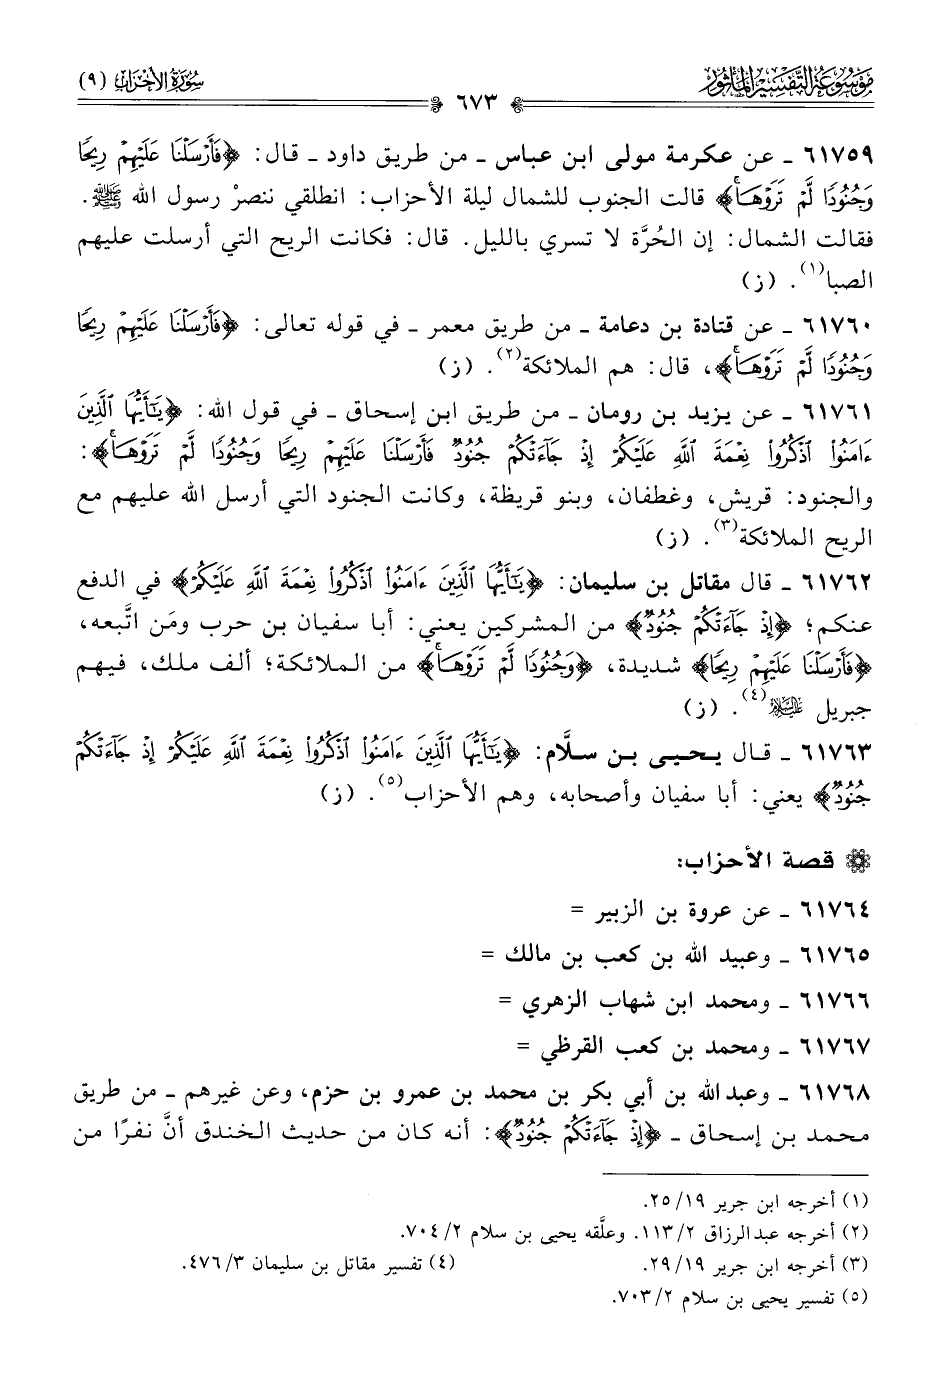 مَوْسُوعَة التَّفْسِيْرِ المَأْثُور
سُورَةُ الأَحْزَابِ (٩)
٦٧٣
٦١٧٥٩ ـ عن عكرمة مولى ابن عباس ـ من طريق داود ـ قال: ﴿فَأَرۡسَلۡنَا عَلَيۡهِمۡ رِيحٗا
وَجُنُودٗا لَّمۡ تَرَوۡهَاۚ﴾ قالت الجنوب للشمال ليلة الأحزاب: انطلقي ننصرْ رسول الله ﷺ.
فقالت الشمال: إن الحُرَّة لا تسري بالليل. قال: فكانت الريح التي أرسلت عليهم
الصبا(١). (ز)
٦١٧٦٠ ـ عن قتادة بن دعامة ـ من طريق معمر ـ في قوله تعالى: ﴿فَأَرۡسَلۡنَا عَلَيۡهِمۡ رِيحٗا
وَجُنُودٗا لَّمۡ تَرَوۡهَاۚ﴾، قال: هم الملائكة(٢). (ز)
٦١٧٦١ ـ عن يزيد بن رومان ـ من طريق ابن إسحاق ـ في قول الله: ﴿يَٰٓأَيُّهَا ٱلَّذِينَ
ءَامَنُواْ ٱذۡكُرُواْ نِعۡمَةَ ٱللَّهِ عَلَيۡكُمۡ إِذۡ جَآءَتۡكُمۡ جُنُودٞ فَأَرۡسَلۡنَا عَلَيۡهِمۡ رِيحٗا وَجُنُودٗا لَّمۡ تَرَوۡهَاۚ﴾:
والجنود: قريش، وغطفان، وبنو قريظة، وكانت الجنود التي أرسل الله عليهم مع
الريح الملائكة(٣). (ز)
٦١٧٦٢ ـ قال مقاتل بن سليمان: ﴿يَٰٓأَيُّهَا ٱلَّذِينَ ءَامَنُواْ ٱذۡكُرُواْ نِعۡمَةَ ٱللَّهِ عَلَيۡكُمۡ﴾ في الدفع
عنكم؛ ﴿إِذۡ جَآءَتۡكُمۡ جُنُودٞ﴾ من المشركين يعني: أبا سفيان بن حرب ومَن اتَّبعه،
﴿فَأَرۡسَلۡنَا عَلَيۡهِمۡ رِيحٗا﴾ شديدة، ﴿وَجُنُودٗا لَّمۡ تَرَوۡهَاۚ﴾ من الملائكة؛ ألف ملك، فيهم
جبريل عليه السلام(٤). (ز)
٦١٧٦٣ ـ قال يحيى بن سلَّام: ﴿يَٰٓأَيُّهَا ٱلَّذِينَ ءَامَنُواْ ٱذۡكُرُواْ نِعۡمَةَ ٱللَّهِ عَلَيۡكُمۡ إِذۡ جَآءَتۡكُمۡ
جُنُودٞ﴾ يعني: أبا سفيان وأصحابه، وهم الأحزاب(٥). (ز)
قصة الأحزاب:
٦١٧٦٤ ـ عن عروة بن الزبير =
٦١٧٦٥ ـ وعبيد الله بن كعب بن مالك =
٦١٧٦٦ ـ ومحمد ابن شهاب الزهري =
٦١٧٦٧ ـ ومحمد بن كعب القرظي =
٦١٧٦٨ ـ وعبد الله بن أبي بكر بن محمد بن عمرو بن حزم، وعن غيرهم ـ من طريق
محمد بن إسحاق ـ ﴿إِذۡ جَآءَتۡكُمۡ جُنُودٞ﴾: أنه كان من حديث الخندق أنَّ نفرًا من
(١) أخرجه ابن جرير ١٩/ ٢٥.
(٢) أخرجه عبد الرزاق ٢/ ١١٣. وعلَّقه يحيى بن سلام ٢/ ٧٠٤.
(٣) أخرجه ابن جرير ١٩/ ٢٩. (٤) تفسير مقاتل بن سليمان ٣/ ٤٧٦.
(٥) تفسير يحيى بن سلام ٢/ ٧٠٣.